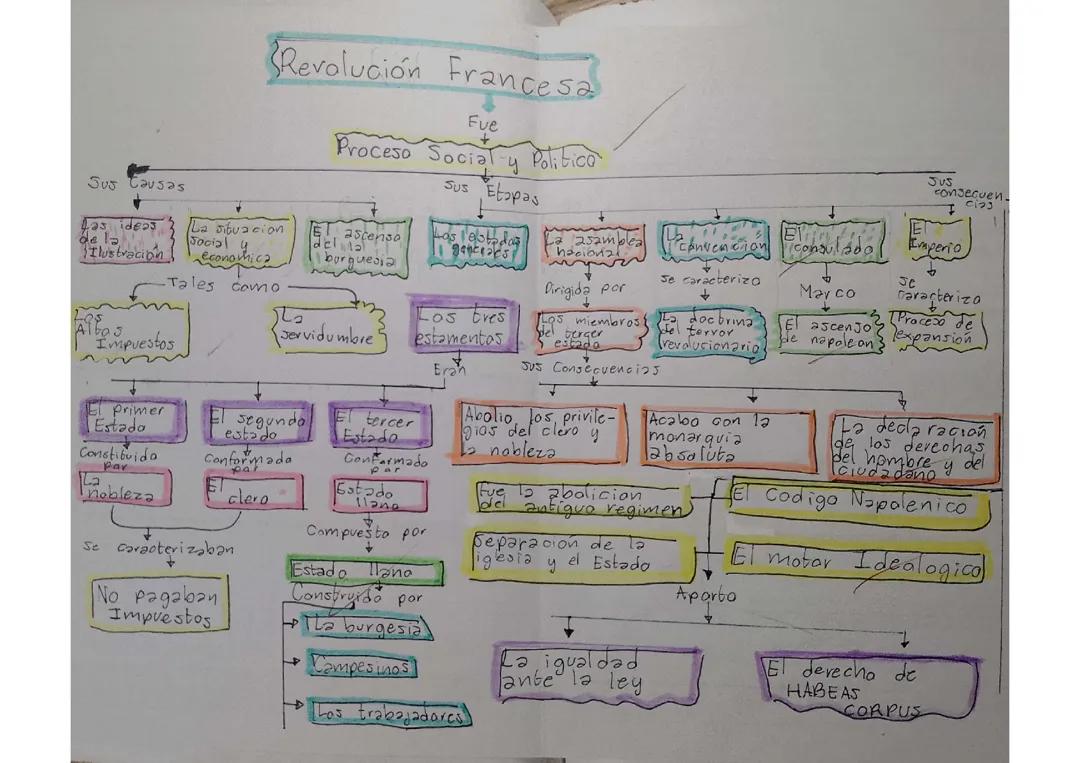 Revolución Francesa
Fue
Proceso Social y Politico
Sus Causas
Sus Etapas
Sus
consecuen-
cias
Las ideas
de la
Ilustración
La situacion
social y
economica
El ascenso
de la
burguesia
Los estados
generales
La asamblea
nacional
La
convención
El
consulado
El
Imperio
Tales como
Dirigida por
Se caracterizo
Marco
Se
caracterizo
Los
Altos
Impuestos
La
servidumbre
Los tres
estamentos
Los miembros
del tercer
estado
La doctrina
del terror
revolucionario
El ascenso
de napoleon
Proceso de
expansión
Eran
Sus Consecuencias
El primer
Estado
El segundo
estado
El tercer
Estado
Abolio los privile-
gios del clero y
la nobleza
Acabo con la
monarquia
absoluta
La declaración
de los derechos
del hombre y del
ciudadano
Constituido
par
Conformada
par
Conformado
par
La
nobleza
El
clero
Estado
llano
Fue la abolicion
del antiguo regimen
El Codigo Napolenico
Compuesto por
Separacion de la
iglesia y el Estado
El motor Idealogico
Se caracterizaban
Estado llano
Construido por
Aporto
No pagaban
Impuestos
La burgesia
Campesinos
Los trabajadores
La igualdad
ante la ley
El derecho de
HABEAS
CORPUS